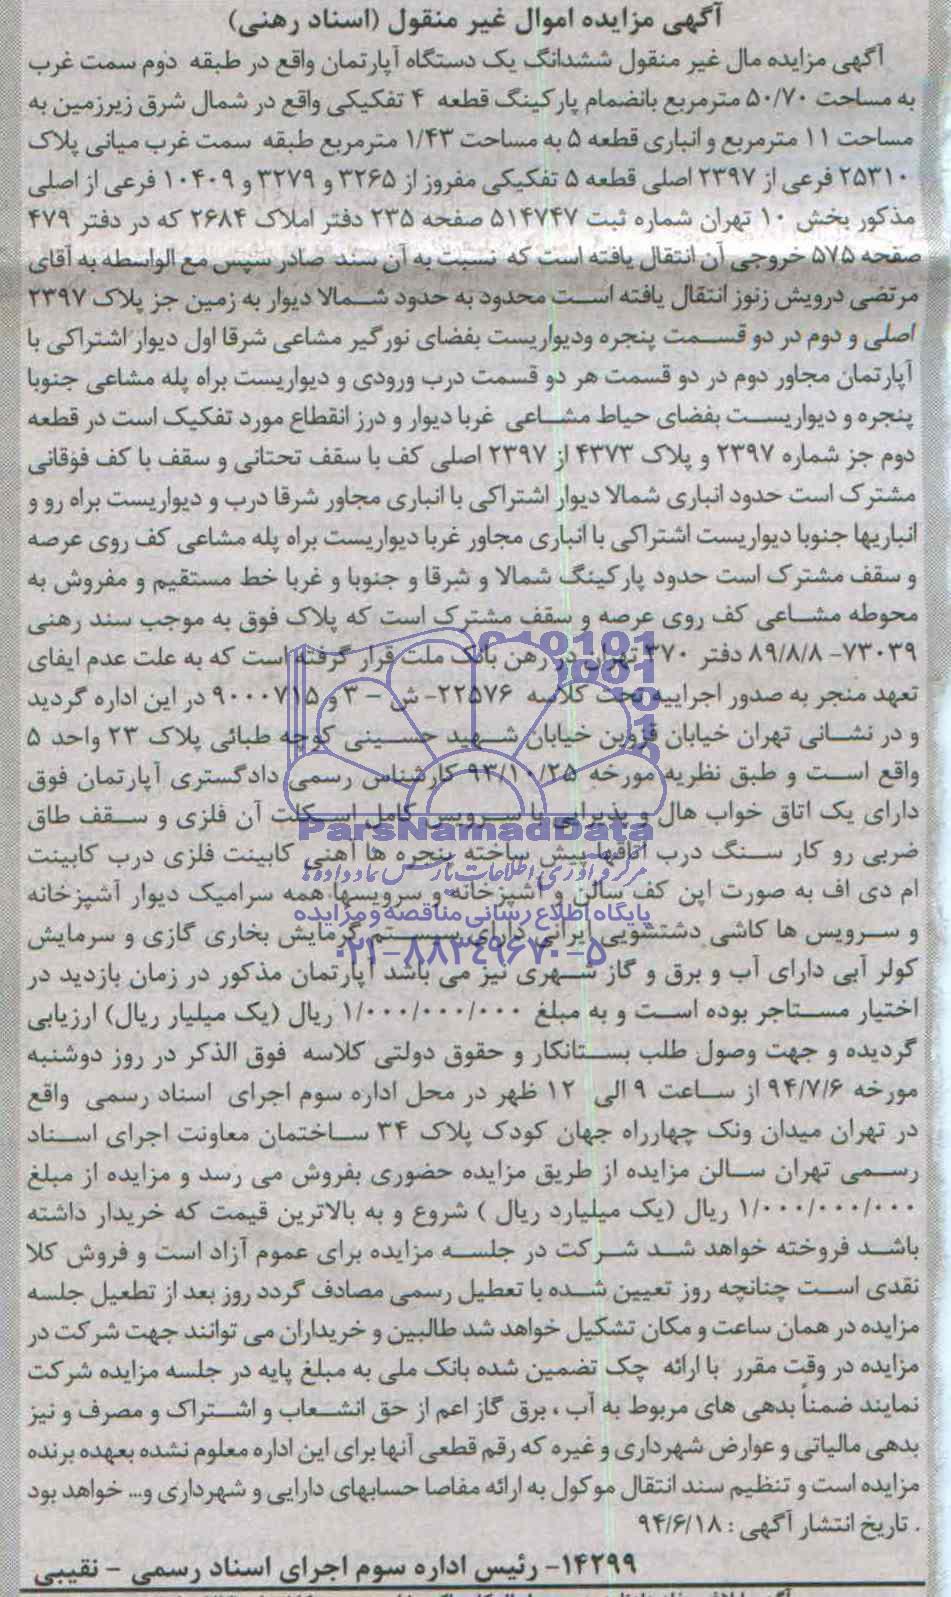 آگهی مزایده اموال غیر منقول (اسناد رهنی)
آگهی مزایده مال غیر منقول ششدانگ یک دستگاه آپارتمان واقع در طبقه دوم سمت غرب
به مساحت ۵۰/۷۰ مترمربع بانضمام پارکینگ قطعه ۴ تفکیکی واقع در شمال شرق زیرزمین به
مساحت ۱۱ مترمربع و انباری قطعه ۵ به مساحت ۱/۴۳ مترمربع طبقه سمت غرب میانی پلاک
۲۵۳۱۰ فرعی از ۲۳۹۷ اصلی قطعه ۵ تفکیکی مفروز از ۳۲۶۵ و ۳۲۷۹ و ۱۰۴۰۹ فرعی از اصلی
مذکور بخش ۱۰ تهران شماره ثبت ۵۱۴۷۴۷ صفحه ۲۳۵ دفتر املاک ۲۶۸۴ که در دفتر ۴۷۹
صفحه ۵۷۵ خروجی آن انتقال یافته است که نسبت به آن سند صادر سپس مع الواسطه به آقای
مرتضی درویش زنوز انتقال یافته است محدود به حدود شمالا دیوار به زمین جز پلاک ۲۳۹۷
اصلی و دوم در دو قسمت پنجره ودیواریست بفضای نورگیر مشاعی شرقا اول دیوار اشتراکی با
آپارتمان مجاور دوم در دو قسمت هر دو قسمت درب ورودی و دیواریست براه پله مشاعی جنوبا
پنجره و دیواریست بفضای حیاط مشاعی غربا دیوار و درز انقطاع مورد تفکیک است در قطعه
دوم جز شماره ۲۳۹۷ و پلاک ۴۳۷۳ از ۲۳۹۷ اصلی کف با سقف تحتانی و سقف با کف فوقانی
مشترک است حدود انباری شمالا دیوار اشتراکی با انباری مجاور شرقا درب و دیواریست براه رو و
انباریها جنوبا دیواریست اشتراکی با انباری مجاور غربا دیواریست براه پله مشاعی کف روی عرصه
و سقف مشترک است حدود پارکینگ شمالا و شرقا و جنوبا و غربا خط مستقیم و مفروش به
محوطه مشاعی کف روی عرصه و سقف مشترک است که پلاک فوق به موجب سند رهنی
۷۳۰۳۹- ۸۹/۸/۸ دفتر ۳۷۰ تهران در رهن بانک ملت قرار گرفته است که به علت عدم ایفای
تعهد منجر به صدور اجراییه تحت کلاسه ۲۲۵۷۶- ش – ۳ و ۹۰۰۰۷۱۵ در این اداره گردید
و در نشانی تهران خیابان قزوین خیابان شهید حسینی کوچه طبائی پلاک ۲۳ واحد ۵
واقع است و طبق نظریه مورخه ۹۳/۱۰/۲۵ کارشناس رسمی دادگستری آپارتمان فوق
دارای یک اتاق خواب هال و پذیرایی با سرویس کامل اسکلت آن فلزی و سقف طاق
ضربی رو کار سنگ درب اتاقها پیش ساخته پنجره ها آهنی کابینت فلزی درب کابینت
ام دی اف به صورت اپن کف سالن و آشپزخانه و سرویسها همه سرامیک دیوار آشپزخانه
و سرویس ها کاشی دشتشویی ایرانی دارای سیستم گرمایش بخاری گازی و سرمایش
کولر آبی دارای آب و برق و گاز شهری نیز می باشد آپارتمان مذکور در زمان بازدید در
اختیار مستاجر بوده است و به مبلغ ۱/۰۰۰/۰۰۰/۰۰۰ ریال (یک میلیار ریال) ارزیابی
گردیده و جهت وصول طلب بستانکار و حقوق دولتی کلاسه فوق الذکر در روز دوشنبه
مورخه ۹۴/۷/۶ از ساعت ۹ الی ۱۲ ظهر در محل اداره سوم اجرای اسناد رسمی واقع
در تهران میدان ونک چهارراه جهان کودک پلاک ۳۴ ساختمان معاونت اجرای اسناد
رسمی تهران سالن مزایده از طریق مزایده حضوری بفروش می رسد و مزایده از مبلغ
۱/۰۰۰/۰۰۰/۰۰۰ ریال (یک میلیارد ریال ) شروع و به بالاترین قیمت که خریدار داشته
باشد فروخته خواهد شد شرکت در جلسه مزایده برای عموم آزاد است و فروش کلا
نقدی است چنانچه روز تعیین شده با تعطیل رسمی مصادف گردد روز بعد از تطعیل جلسه
مزایده در همان ساعت و مکان تشکیل خواهد شد طالبین و خریداران می توانند جهت شرکت در
مزایده در وقت مقرر با ارائه چک تضمین شده بانک ملی به مبلغ پایه در جلسه مزایده شرکت
نمایند ضمناً بدهی های مربوط به آب ، برق گاز اعم از حق انشعاب و اشتراک و مصرف و نیز
بدهی مالیاتی و عوارض شهرداری و غیره که رقم قطعی آنها برای این اداره معلوم نشده بعهده برنده
مزایده است و تنظیم سند انتقال موکول به ارائه مفاصا حسابهای دارایی و شهرداری و... خواهد بود
. تاریخ انتشار آگهی : ۹۴/۶/۱۸
۱۴۲۹۹- رئیس اداره سوم اجرای اسناد رسمی – نقیبی
ParsNamadData
مرکز فرآوری اطلاعات پارس نماد داده ها
پایگاه اطلاع رسانی مناقصه و مزایده
۰۲۱-۸۸۳۴۹۶۷۰-۵